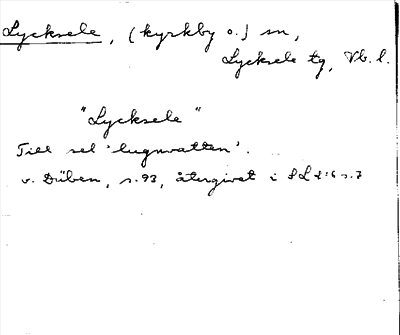 Lycksele, (kyrkby o.) sn,
Lycksele tg, Vb. l.
"Lycksele"
Till sel 'lugnvatten'.
v. Düben, s. 93, återgivet i SL 2:6 s. 7